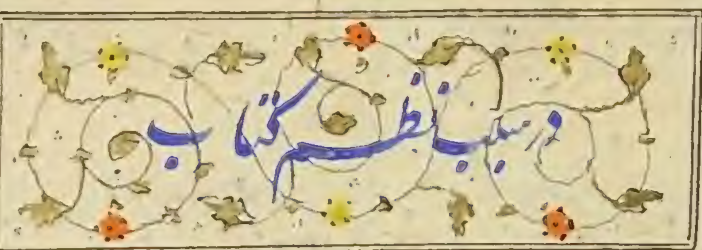 در سبب نظم کتاب